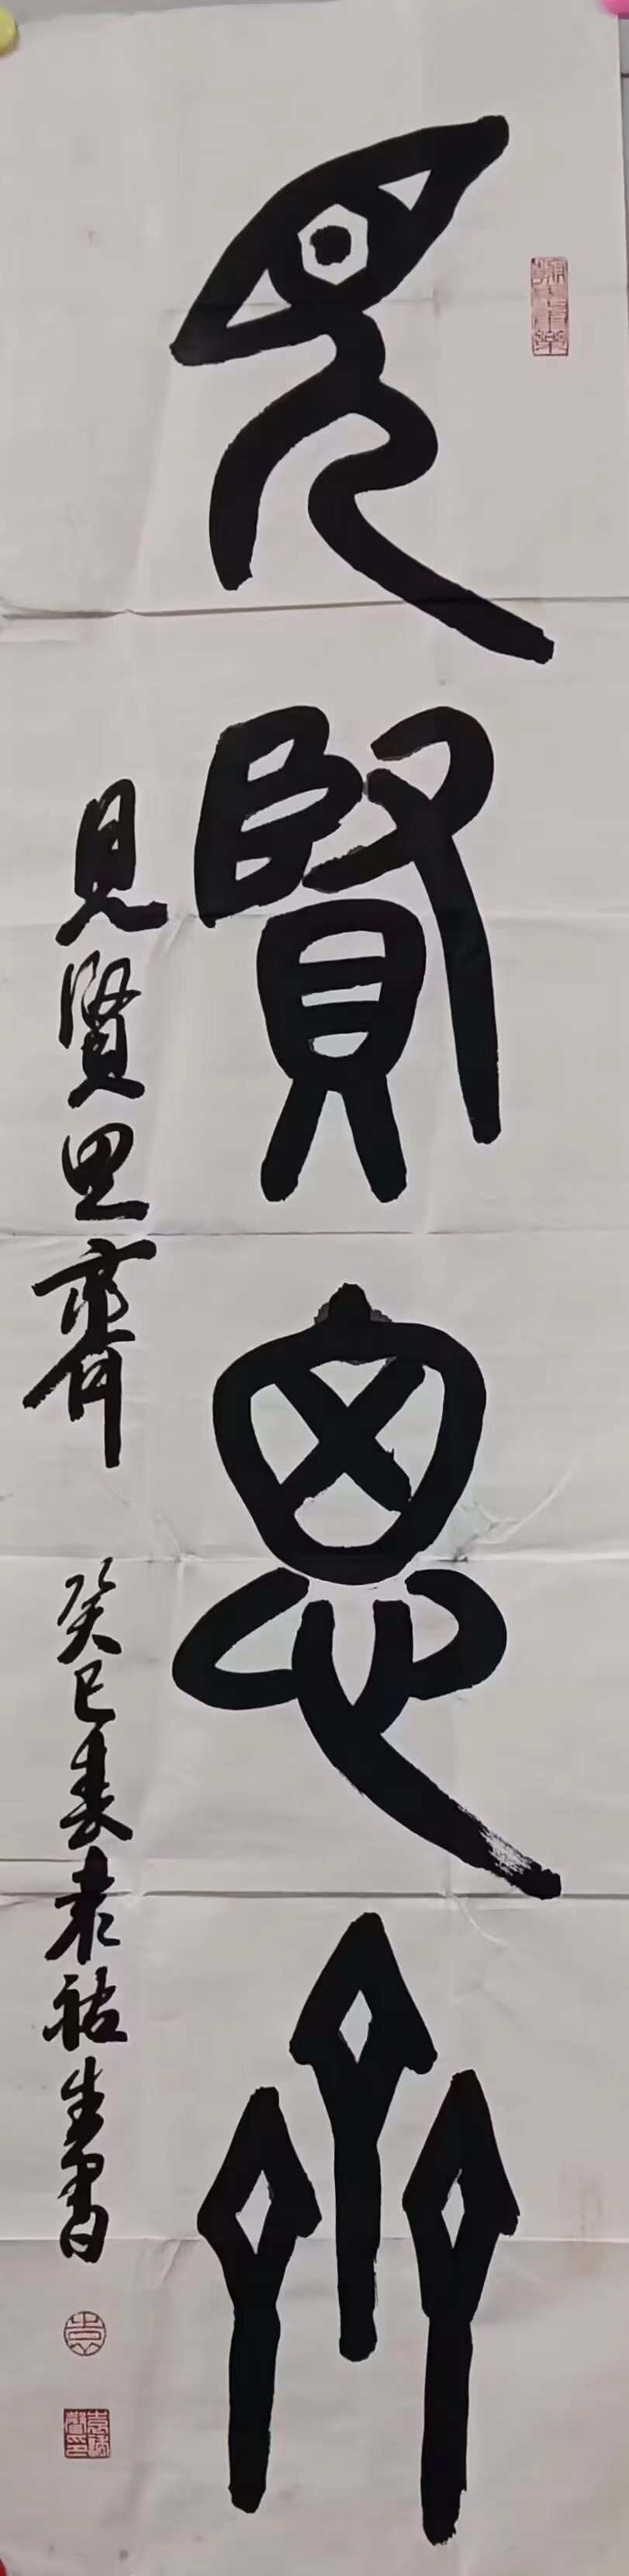 見賢思齊
見賢思齊 癸巳春袁祜生書